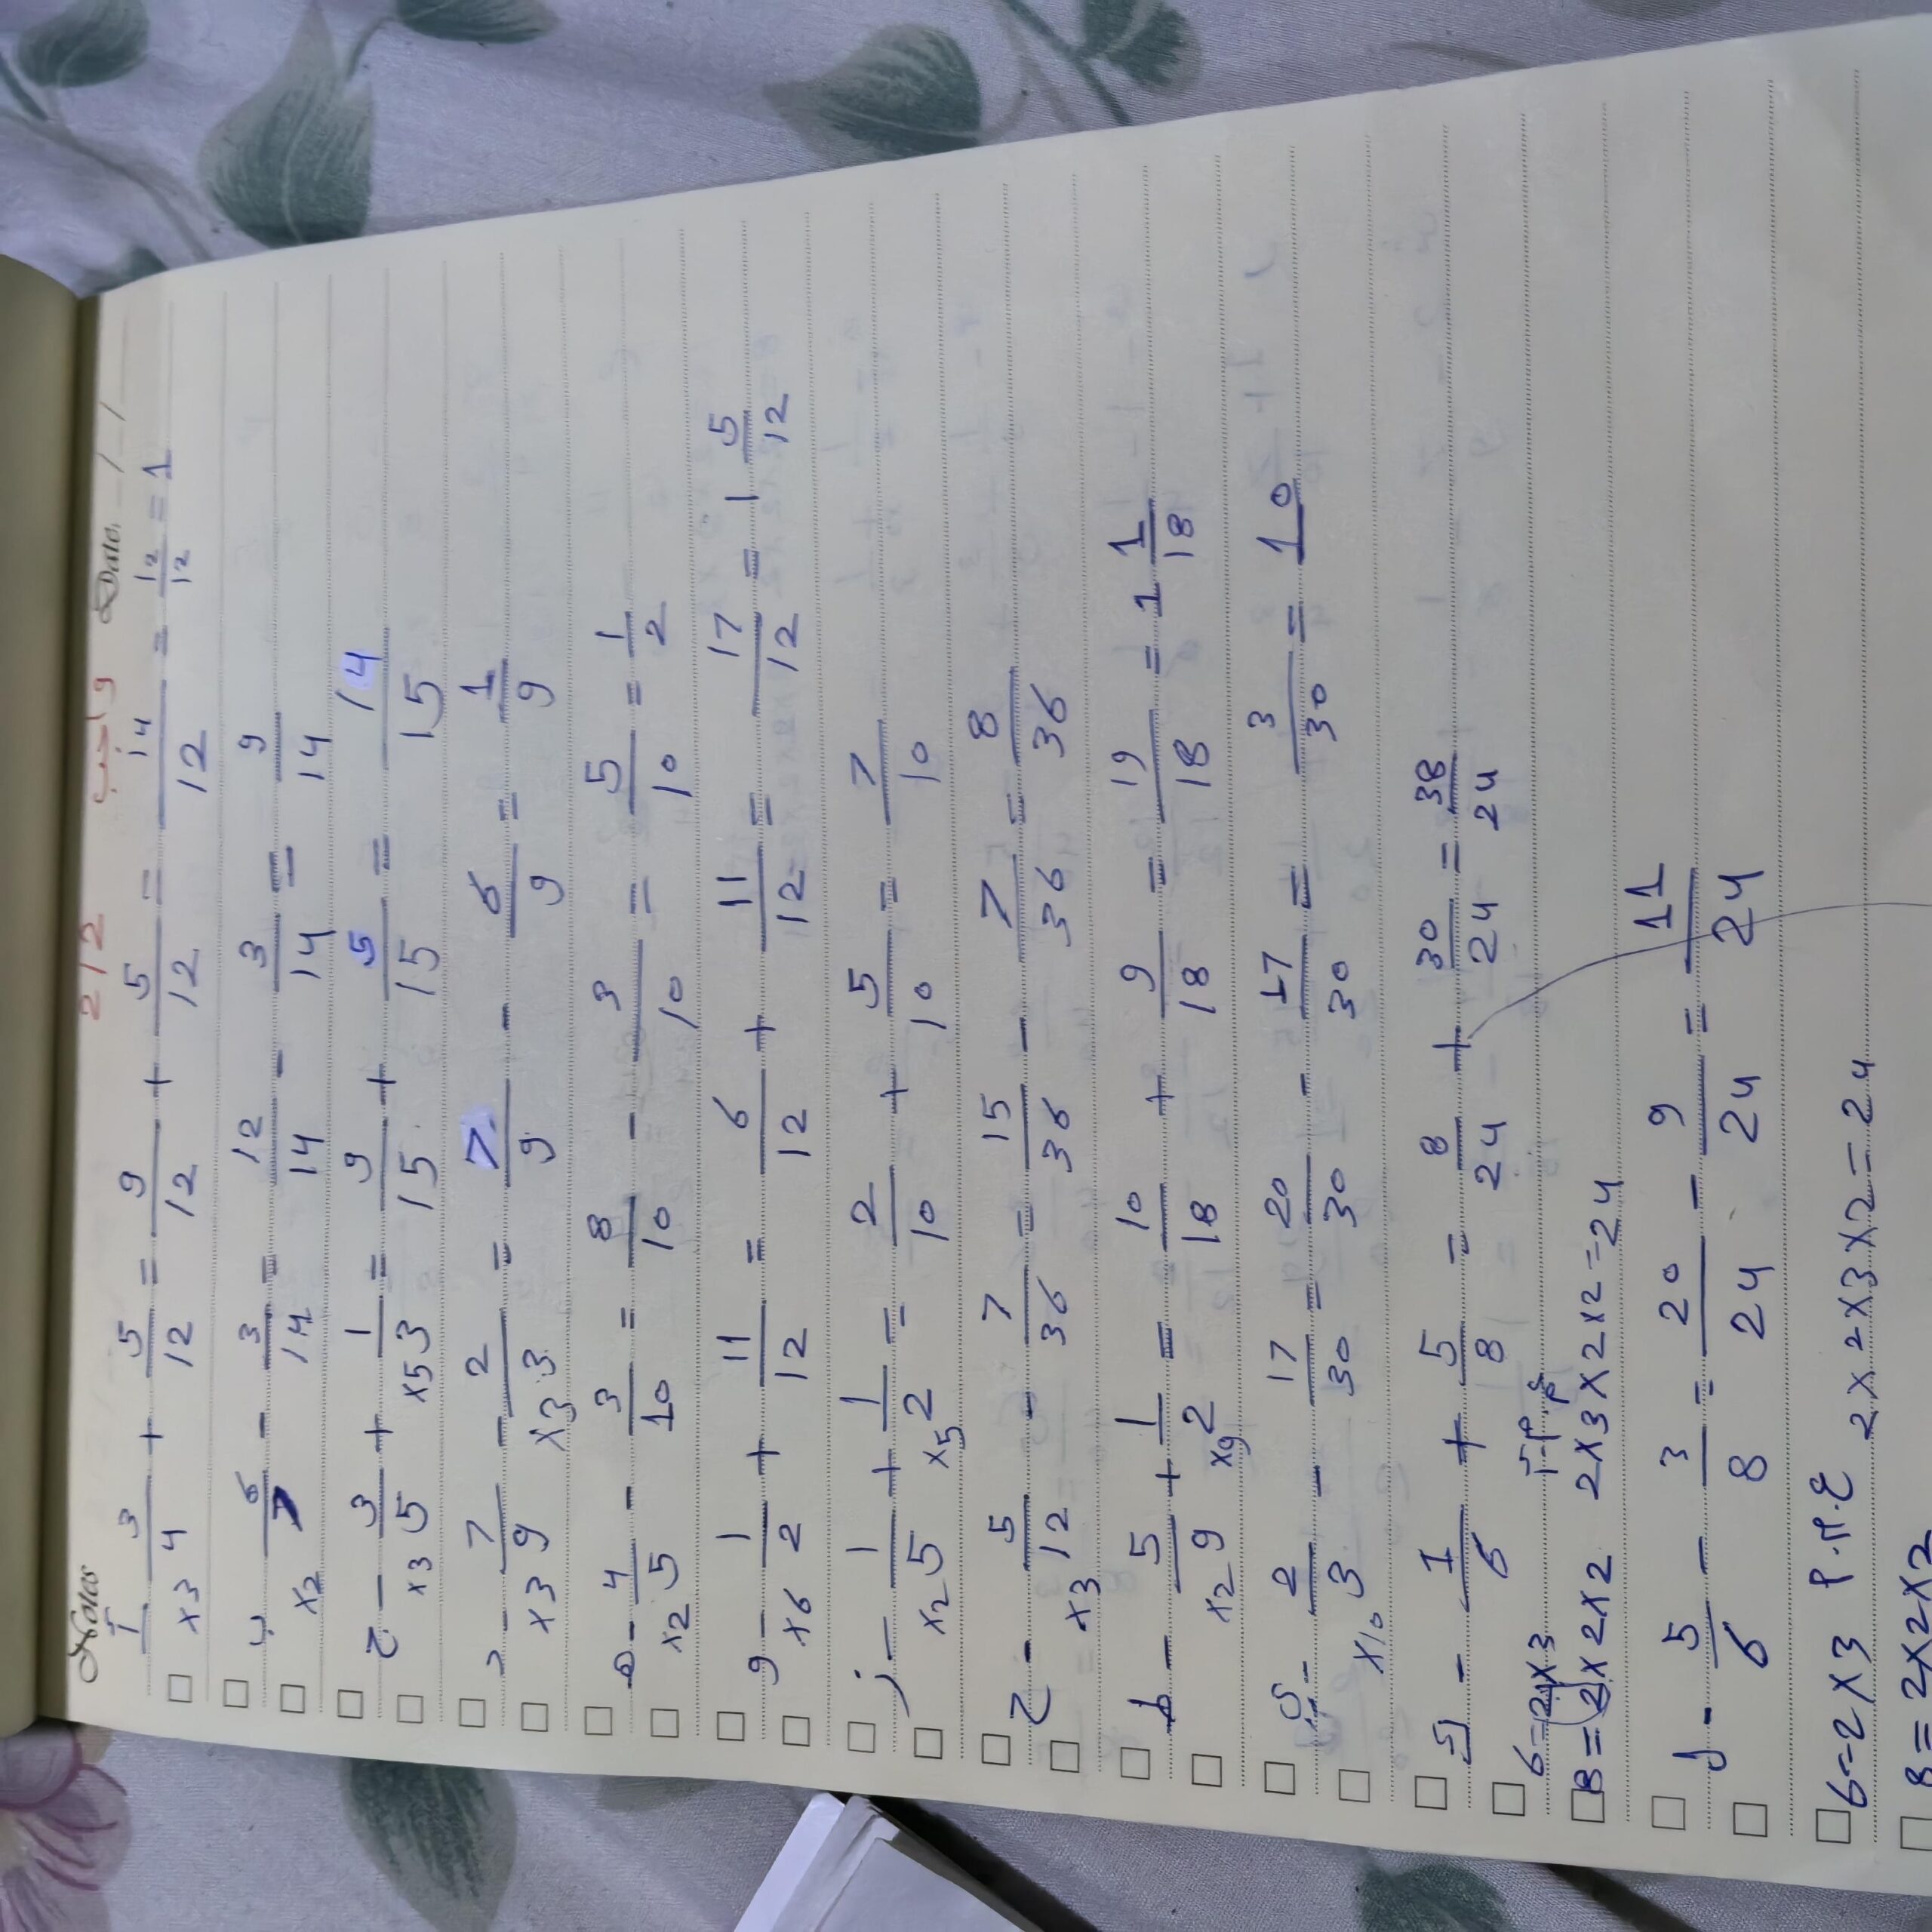 Notes 212 واجب Date. / /
أ 3/4 ×3 + 5/12 = 9/12 + 5/12 = 14/12 = 12/12 = 1
ب 6/7 ×2 - 3/14 = 12/14 - 3/14 = 9/14
ح - 3/5 ×3 + 1/3 ×5 = 9/15 + 5/15 = 14/15
د - 7/9 ×3 - 2/3 ×3 = 7/9 - 6/9 = 1/9
ه - 4/5 ×2 - 3/10 = 8/10 - 3/10 = 5/10 = 1/2
و - 1/2 ×6 + 11/12 = 6/12 + 11/12 = 17/12 = 1 5/12
ز - 1/5 ×2 + 1/2 ×5 = 2/10 + 5/10 = 7/10
ح - 5/12 ×3 - 7/36 = 15/36 - 7/36 = 8/36
ط - 5/9 ×2 + 1/2 ×9 = 10/18 + 9/18 = 19/18 = 1 1/18
ي - 2/3 ×10 - 17/30 = 20/30 - 17/30 = 3/30 = 10
ك - 1/6 + 5/8 = 8/24 + 30/24 = 38/24
6=2×3
8=2×2×2 2×3×2×2=24
ل - 5/6 - 3/8 = 20/24 - 9/24 = 11/24
6=2×3 2×2×3×2=24
8=2×2×2